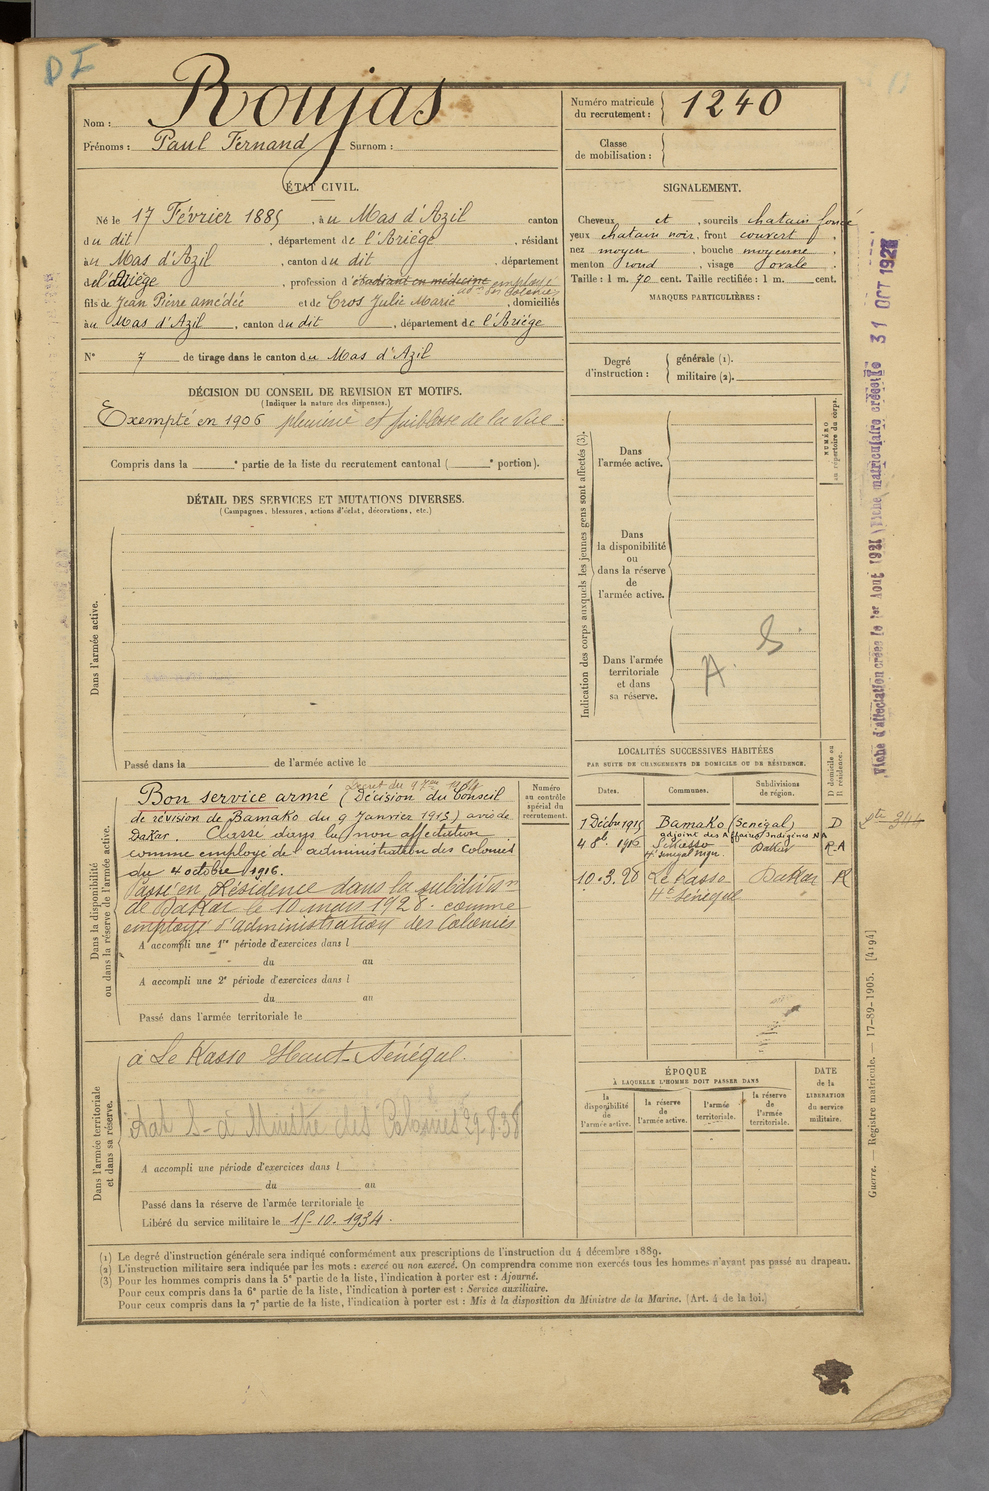 D I
Nom : Roujas
Prénoms : Paul Fernand Surnom :
Numéro matricule du recrutement : 1240
Classe de mobilisation :
ÉTAT CIVIL.
Né le 17 Février 1885, à u Mas d'Azil canton
du dit, département de l'Ariége, résidant
à u Mas d'Azil, canton du dit, département
de l'Ariège, profession d'étudiant en médecine employé
adon des Colonies
fils de Jean Pière amédée et de Cros Julie Marie, domiciliés
à u Mas d'Azil, canton du dit, département de l'Ariége
N° 7 de tirage dans le canton du Mas d'Azil
SIGNALEMENT.
Cheveux et, sourcils chatain foncé
yeux chatain noir, front couvert
nez moyen, bouche moyenne
menton rond, visage ovale
Taille : 1 m. 70 cent. Taille rectifiée : 1 m. cent.
MARQUES PARTICULIÈRES :
Degré d'instruction : générale (1).
militaire (2).
DÉCISION DU CONSEIL DE REVISION ET MOTIFS.
(Indiquer la nature des dispenses.)
Exempté en 1906 pleurésie et faiblesse de la vue
Compris dans la e partie de la liste du recrutement cantonal ( e portion).
DÉTAIL DES SERVICES ET MUTATIONS DIVERSES.
(Campagnes, blessures, actions d'éclat, décorations, etc.)
Dans l'armée active.
Passé dans la de l'armée active le
Indication des corps auxquels les jeunes gens sont affectés (3).
NUMÉRO au répertoire du corps.
Dans l'armée active.
Dans la disponibilité ou dans la réserve de l'armée active.
Dans l'armée territoriale et dans sa réserve.
A. S.
Dans la disponibilité ou dans la réserve de l'armée active.
Numéro au contrôle spécial du recrutement.
Bon service armé (Décision du Conseil
de révision de Bamako du 9 Janvier 1915) avis de
Dakar. Classé dans la non affectation
comme employé de l'administration des Colonies
du 4 octobre 1916.
Passé en Résidence dans la subdivision
de Dakar le 10 mars 1928. comme
employé d'administration des Colonies
A accompli une 1re période d'exercices dans l
du au
A accompli une 2e période d'exercices dans l
du au
Passé dans l'armée territoriale le
LOCALITÉS SUCCESSIVES HABITÉES
PAR SUITE DE CHANGEMENTS DE DOMICILE OU DE RÉSIDENCE.
Dates. Communes. Subdivisions de région. D domicile ou R résidence.
1 Décbr 1915 Bamako (Senégal) D
adjoint des Affaires Indigènes N A
4 8b. 1916 Dakar R.A
Ht Senégal Niger.
10.3.28 Le Kasso Dakar R
Ht Sénégal "
Dans l'armée territoriale et dans sa réserve.
à Le Kasso Haut-Sénégal.
S - à Ministre des Colonies 29.8.38
A accompli une période d'exercices dans l
du au
Passé dans la réserve de l'armée territoriale le
Libéré du service militaire le 15-10-1934.
ÉPOQUE
À LAQUELLE L'HOMME DOIT PASSER DANS
la disponibilité de l'armée active. la réserve de l'armée active. l'armée territoriale. la réserve de l'armée territoriale.
DATE de la LIBÉRATION du service militaire.
(1) Le degré d'instruction générale sera indiqué conformément aux prescriptions de l'instruction du 4 décembre 1889.
(2) L'instruction militaire sera indiquée par les mots : exercé ou non exercé. On comprendra comme non exercés tous les hommes n'ayant pas passé au drapeau.
(3) Pour les hommes compris dans la 5e partie de la liste, l'indication à porter est : Ajourné.
Pour ceux compris dans la 6e partie de la liste, l'indication à porter est : Service auxiliaire.
Pour ceux compris dans la 7e partie de la liste, l'indication à porter est : Mis à la disposition du Ministre de la Marine. (Art. 4 de la loi.)
Fiche d'affectation créée le 1er Aout 1921 \ Fiche matriculaire créée le 31 OCT 1927
Guerre. — Registre matricule. — 17-89-1905. [4194]